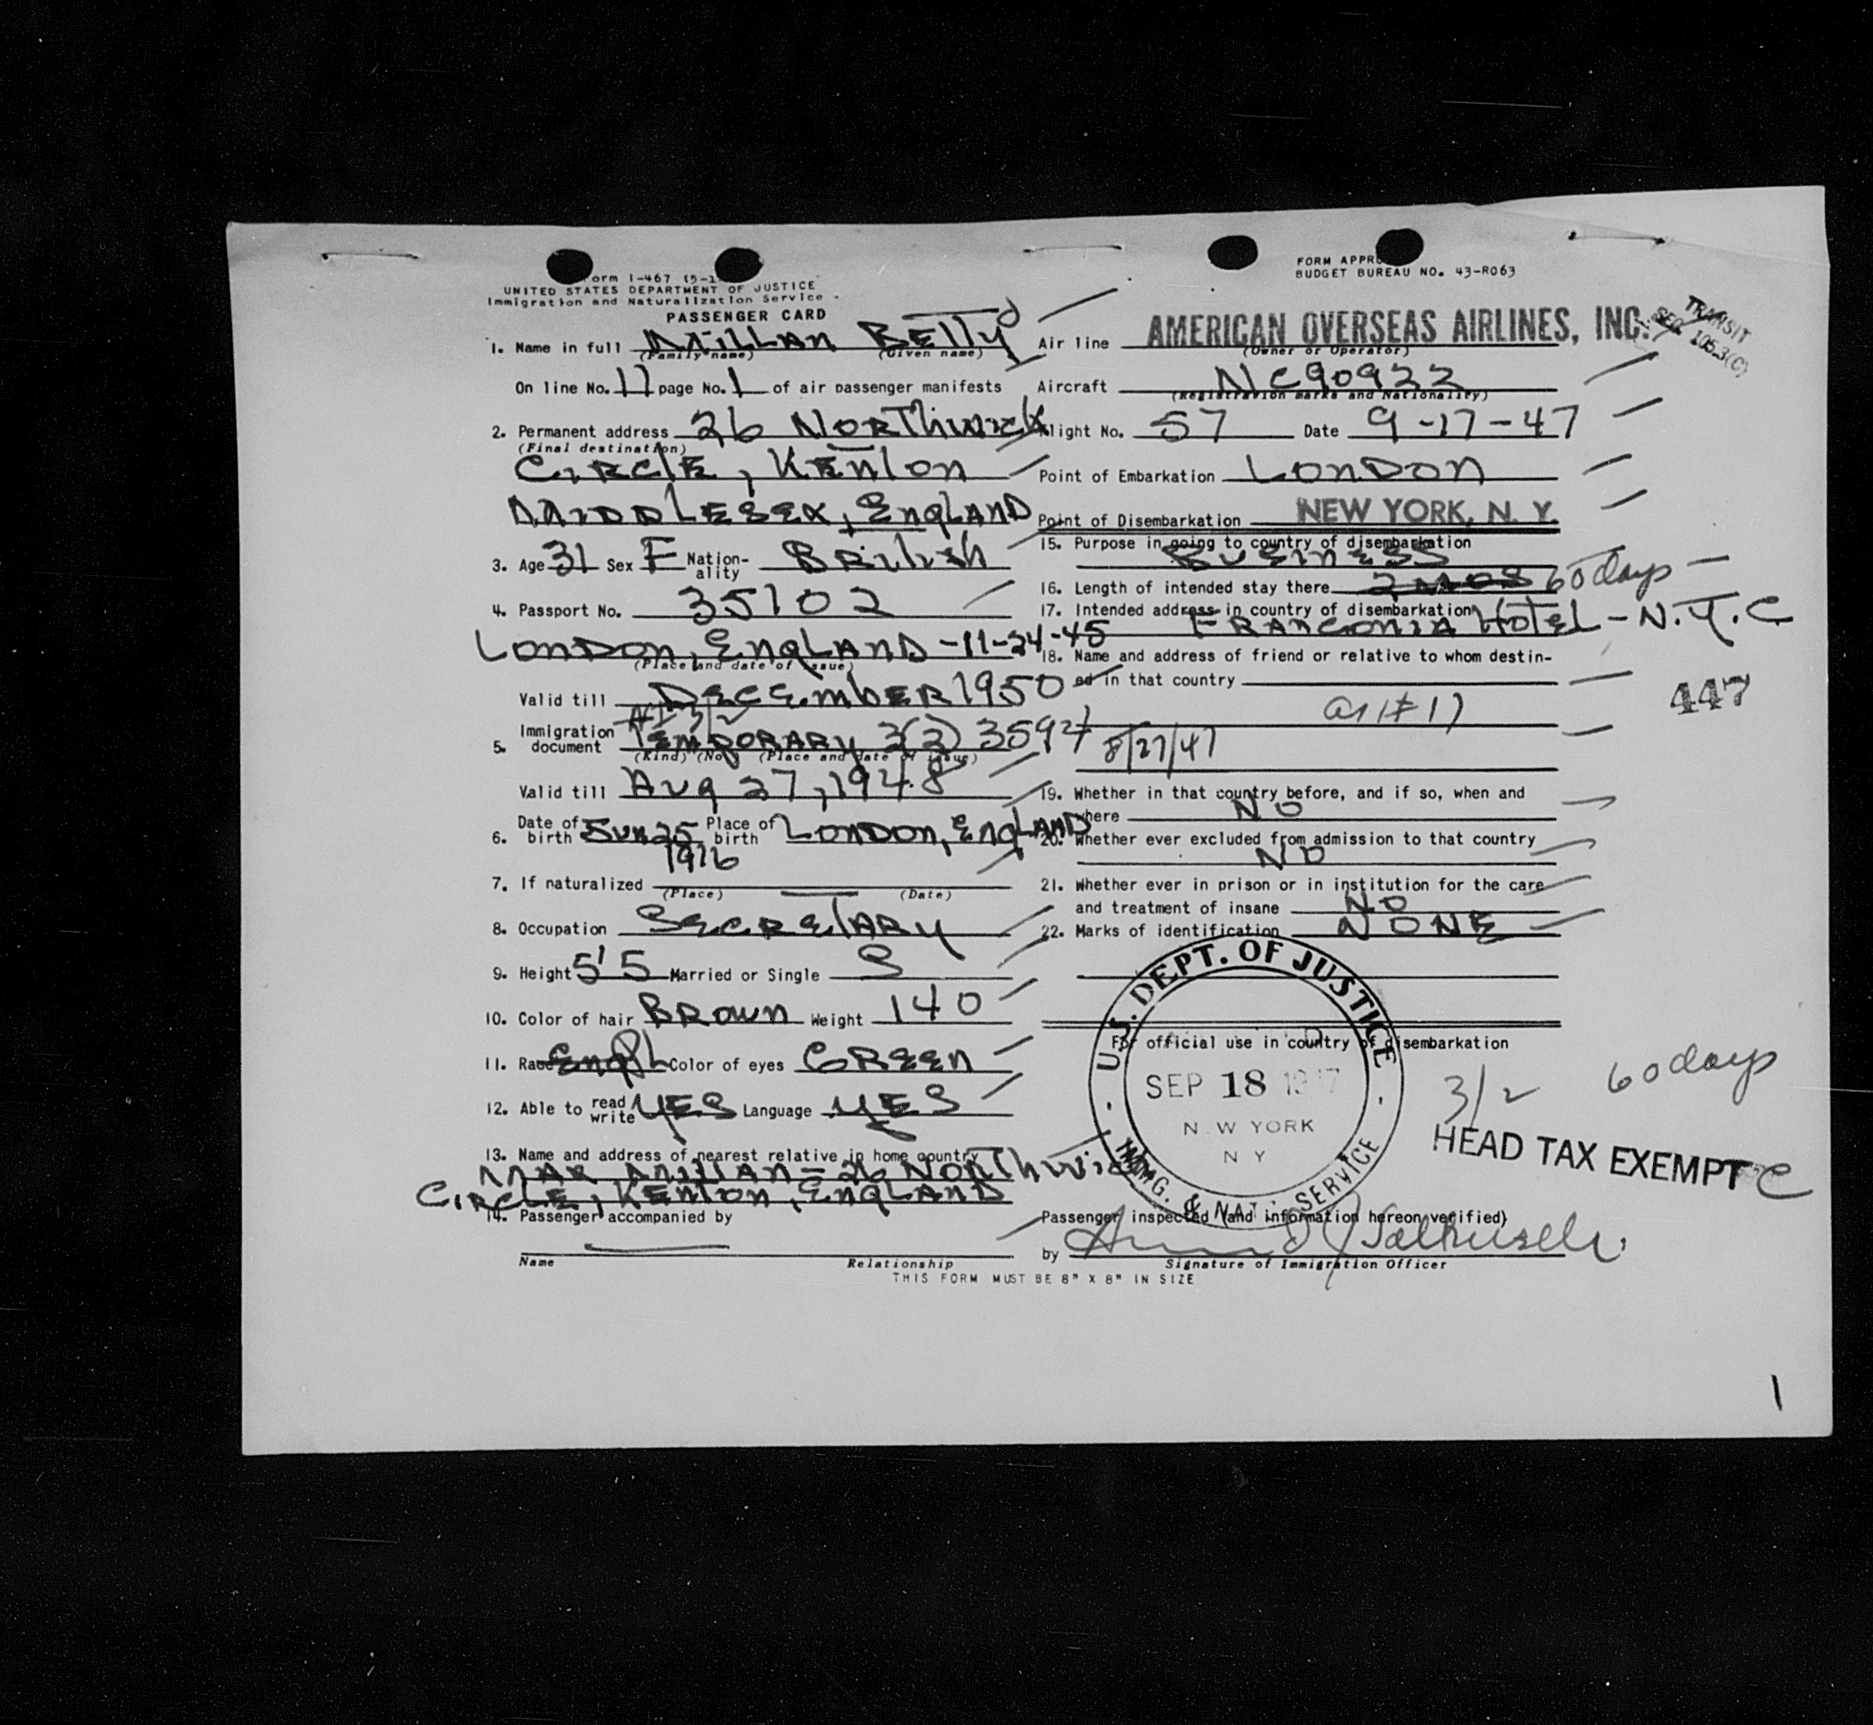 orm I-467 (5-1
UNITED STATES DEPARTMENT OF JUSTICE
Immigration and Naturalization Service
PASSENGER CARD
FORM APPR
BUDGET BUREAU NO. 43-R063
1. Name in full Millan Betty
(Family name) (Given name)
On line No. 11 page No. 1 of air passenger manifests
2. Permanent address 26 Northwick
(Final destination)
Circle, Kenton
Middlesex, England
3. Age 31 Sex F Nation-ality British
4. Passport No. 35102
London, England - 11-24-45
(Place and date of issue)
Valid till December 1950
5. Immigration document Temporary 3(2) 3594
8/27/47
(Kind) (No) (Place and date of issue)
Valid till Aug 27, 1948
6. Date of birth Jun 25 Place of birth London, England
1916
7. If naturalized
(Place) (Date)
8. Occupation Secretary
9. Height 5'5 Married or Single S
10. Color of hair Brown Weight 140
11. Race Engsh Color of eyes Green
12. Able to read write Yes Language Yes
13. Name and address of nearest relative in home country
Max Millan - 26 Northwick
Circle, Kenton, England
14. Passenger accompanied by
Name Relationship
THIS FORM MUST BE 8" X 8" IN SIZE
Air line AMERICAN OVERSEAS AIRLINES, INC.
(Owner or Operator)
TRANSIT
SEC 105.3(C)
Aircraft NC90922
(Registration marks and Nationality)
light No. 57 Date 9-17-47
Point of Embarkation London
Point of Disembarkation NEW YORK, N. Y.
15. Purpose in going to country of disembarkation
Business
16. Length of intended stay there 2 mos 60 days
17. Intended address in country of disembarkation
Franconia Hotel - N.Y.C
18. Name and address of friend or relative to whom destin-
ed in that country
as # 17
447
19. Whether in that country before, and if so, when and
where No
20. Whether ever excluded from admission to that country
No
21. Whether ever in prison or in institution for the care
and treatment of insane No
22. Marks of identification None
U.S. DEPT. OF JUSTICE
For official use in country of disembarkation
SEP 18 1947
NEW YORK
N Y
IMMG. & NAT. SERVICE
3/2 60 days
HEAD TAX EXEMPT C
Passenger inspected (and information hereon verified)
by
Signature of Immigration Officer
1